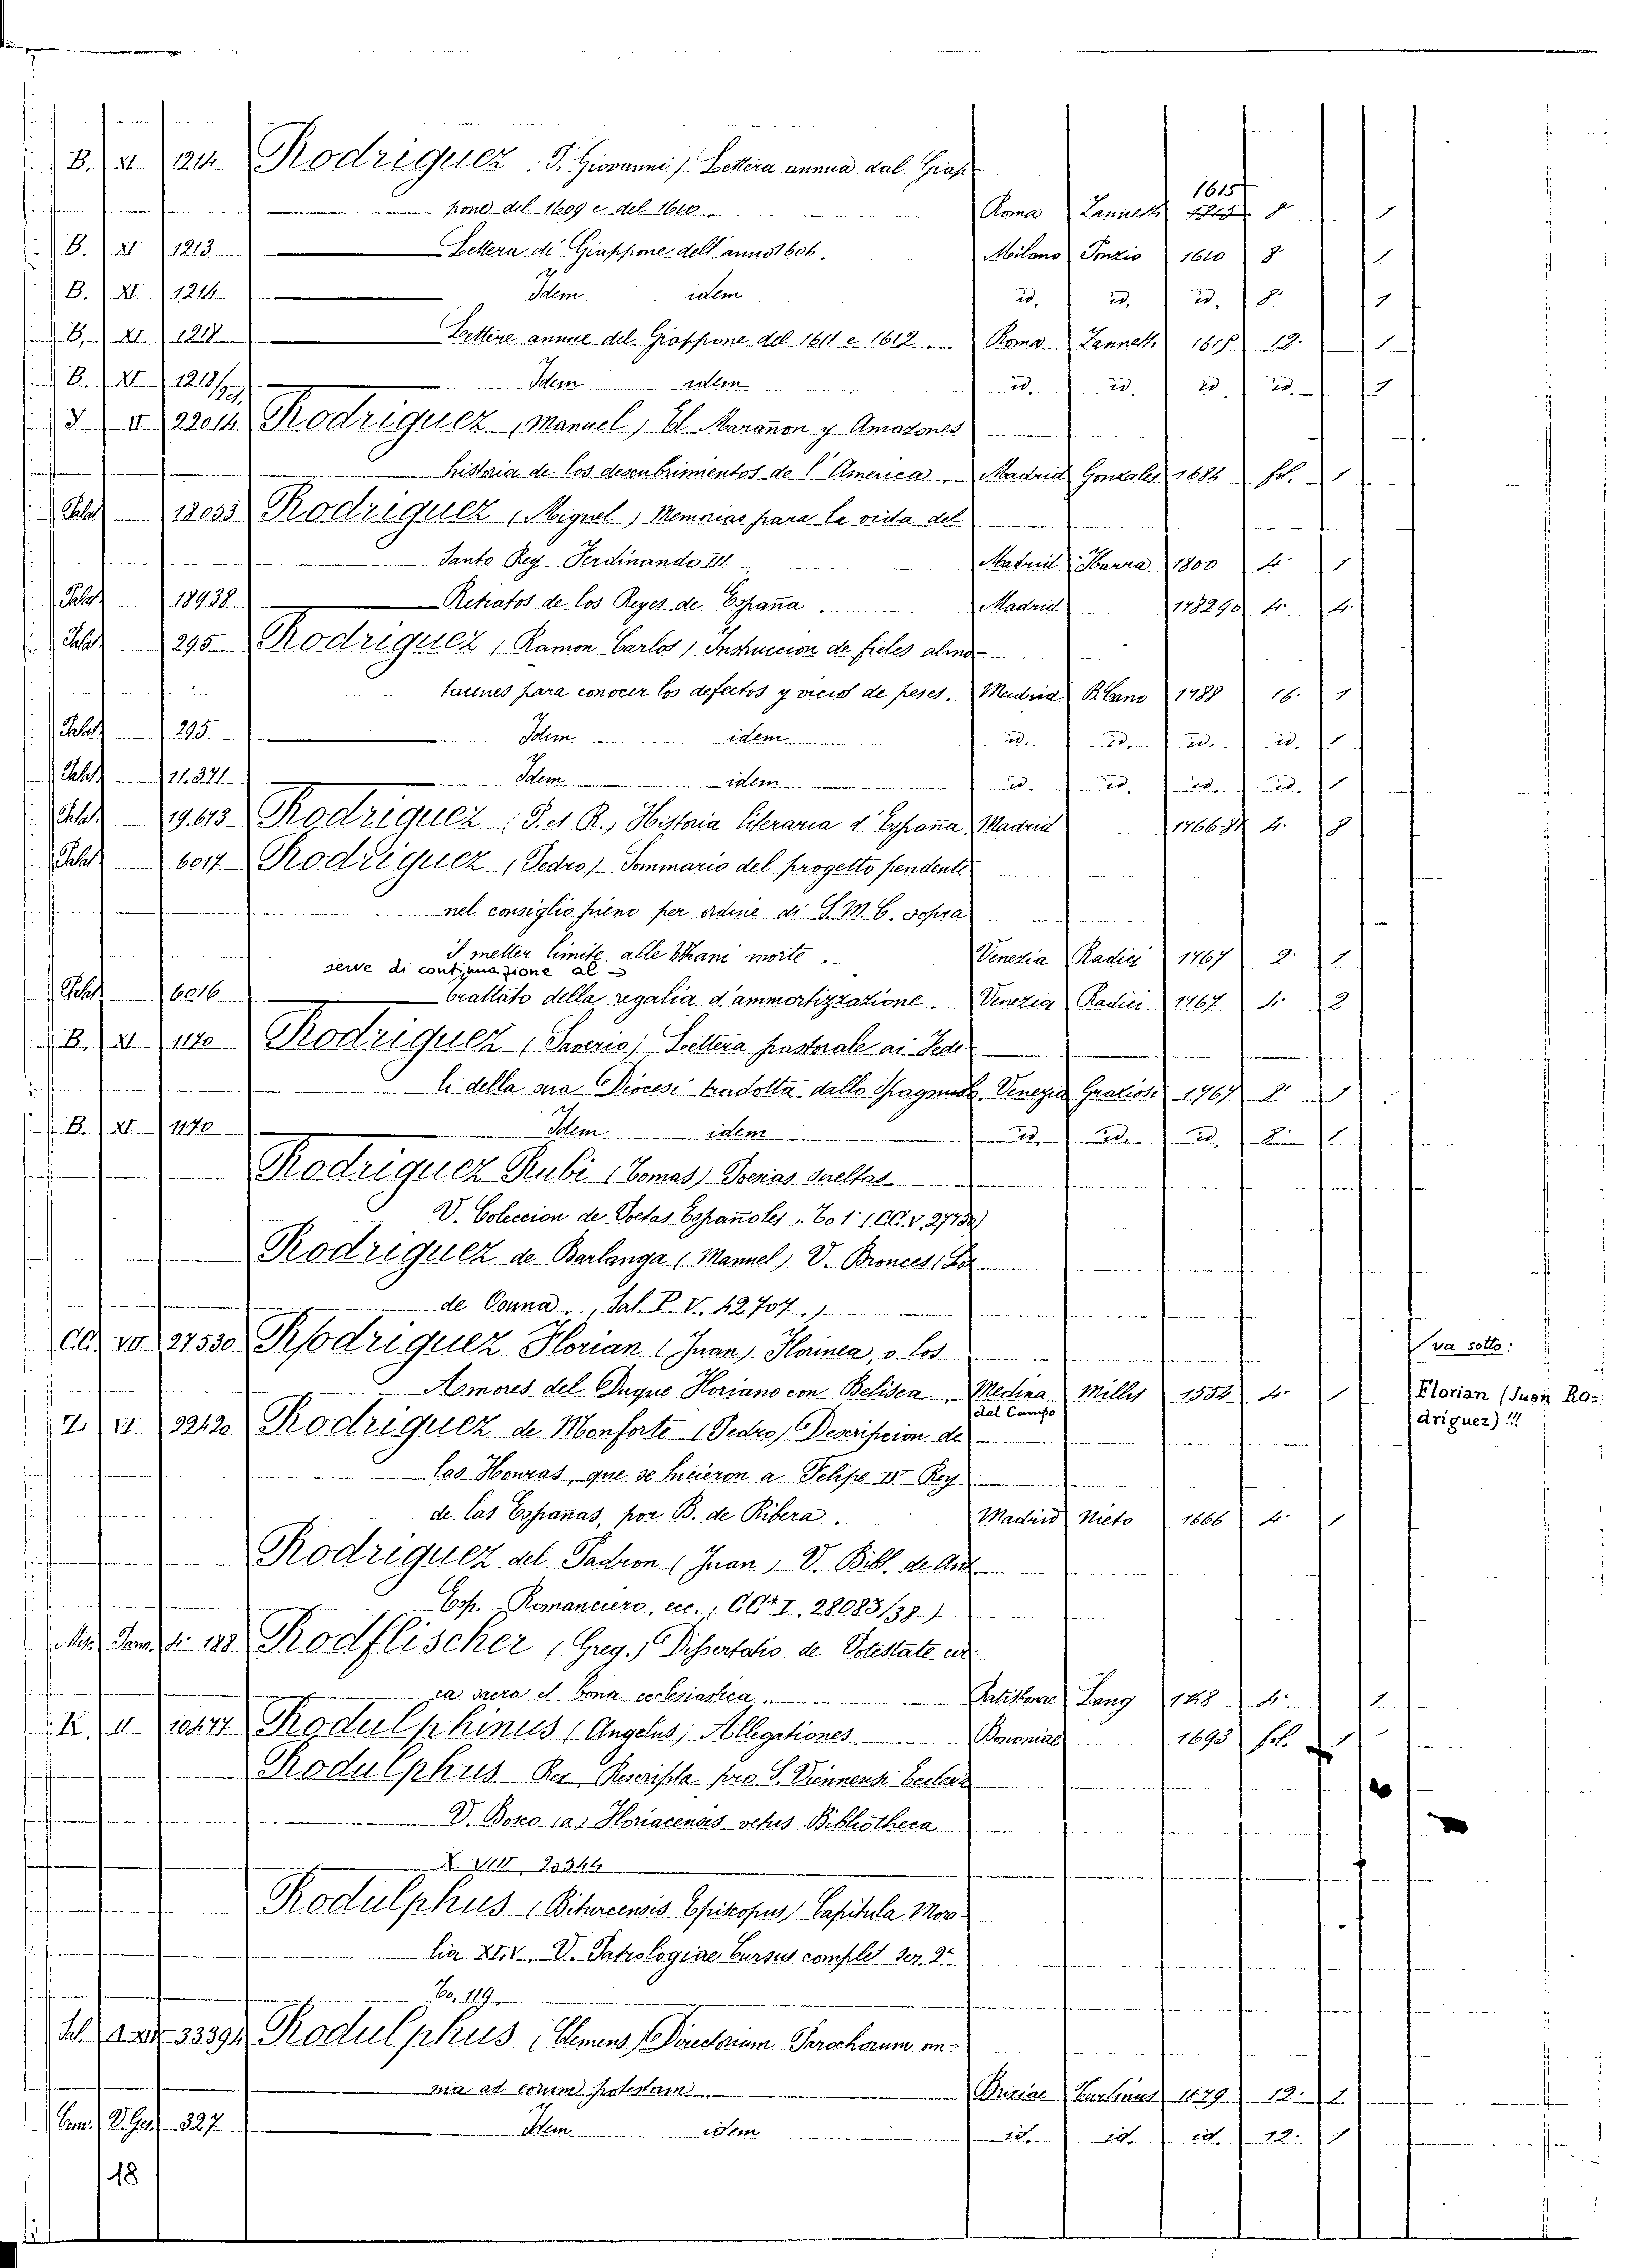 B. XI. 1214. Rodriguez P. Giovanni) Lettera annua dal Giap
pone del 1609. e del 1610. Roma Zannetti 1615 8 1
B. XI. 1213 Lettera di Giappone dell'anno 1606. Milano Ponzio 1610 8 1
B. XI. 1214 Idem. idem id. id. id. 8. 1
B. XI. 1218 Lettere annue del Giappone del 1611 e 1612. Roma Zannetti 1615. 12. 1
B. XI 1218/ Idem idem id. id. id id. 1
Rodriguez (Manuel) El Marañon y Amazones
historia de los descubrimientos de l'America. Madrid Gonzales 1684 fol. 1
Palat 12033 Rodriguez (Miguel) Memorias para la vida del
Santo Rey Ferdinando III. Madrid Ibarra 1800 4. 1
Palat 18938. Retratos de los Reyes de España Madrid 4. 4.
Palat 295 Rodriguez (Ramon Carlos) Instruccion de fieles alma
tacenes para conocer los defectos y vicios de peses. Madrid B. Cano 1788 16. 1
Palat 295 Idem idem id. id. id. id. 1
Palat 11.371. Idem idem id. id. id. id. 1
Palat 19.613 Rodriguez (P. et R., Historia literaria d'España Madrid 4. 8
Palat 6017 Rodriguez (Pedro) Sommario del progetto pendente
nel consiglio pieno per ordine di S. M. C. sopra
il metter limite alle Mani morte. Venezia Radici 1767 2. 1
serve di continuazione al
Palat 6016 trattato della regalia d'ammortizzazione. Venezia Radici 1767 4. 2
B. XI 1170 Rodriguez (Saverio) Lettera pastorale ai Fede
li della sua Diocesi tradotta dallo Spagnuolo Venezia Graziosi 1767. 8. 1
B. XI 1170 Idem idem id. id. id. 8. 1
Rodriguez Rubi (Tomas) Poesias sueltas
V. Coleccion de Poetas Españoles. To 1°
Rodriguez de Berlanga (Manuel) V. Bronces (Los
de Osuna, Sal. P. V. 42707.)
27530 Rodriguez Florian (Juan). Florinea, o los
Amores del Duque Floriano con Belisea. Medina del Campo Millis 1554 4. 1
va sotto:
Florian (Juan Ro-
driguez) !!!
VI 22420 Rodriguez de Monforte (Pedro) Descripcion de
las Honras, que se hicieron a Felipe IV Rey
de las Españas, por B. de Ribera. Madrid Nieto 1666 4. 1
Rodriguez del Padron (Juan) V. Bibl. de Aut.
Esp. Romancero, ecc., 28083/38.)
188 Rodflischer (Greg.) Dissertatio de Potestate cir
ca sacra et bona ecclesiastica. Lang 4. 1
K. II 10477 Rodulphinus (Angelus) Allegationes Bononiae 1693 fol.
Rodulphus Rex Rescripta pro S. Viennensi Ecclesia
V. Bosco (a) Floriacensis vetus Bibliotheca
X VIII, 20544
Rodulphus (Bituricensis Episcopus) Capitula Mora
lia XLV. V. Patrologiae Cursus complet. Ser. 2ª
To. 119.
33394 Rodulphus (Clemens) Directorium Parochorum om-
nia ad eorum potestam. Brixiae 1879. 12. 1
Com. V. Ges 327 Idem idem id. id. id. 12. 1
18